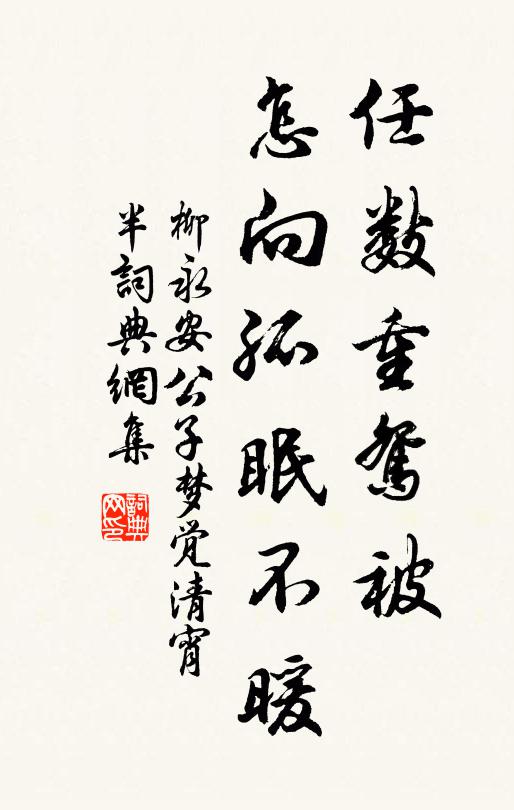 任数重鸳被
怎向孤眠不暖
柳永安公子梦觉清宵
半詞典網集
詞典网印